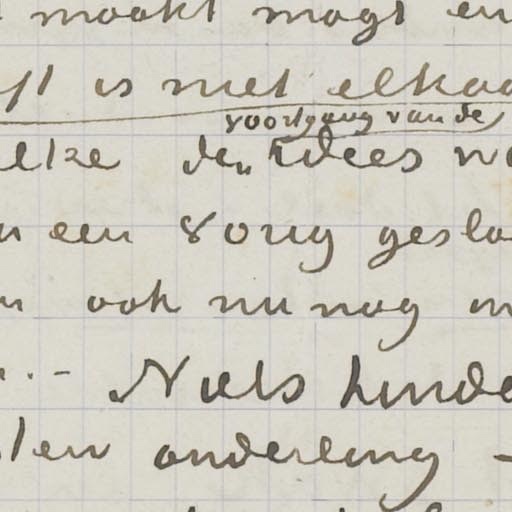 maakt magt en
is met elkaa
voortgang van de
elke den Idees
een song gesla
ook nu nog
Niets hinde
ten onderling -